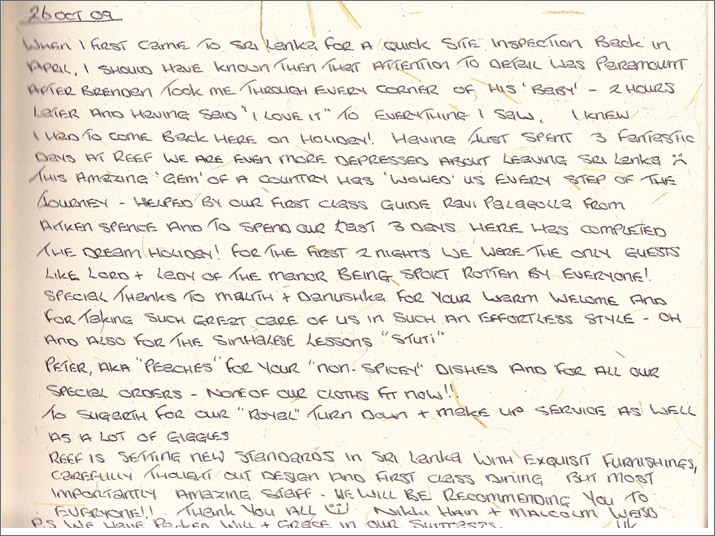 26 OCT 09
WHEN I FIRST CAME TO SRI LANKA FOR A QUICK SITE INSPECTION BACK IN
APRIL, I SHOULD HAVE KNOWN THEN THAT ATTENTION TO DETAIL WAS PARAMOUNT
AFTER BRENDEN TOOK ME THROUGH EVERY CORNER OF HIS 'BABY' - 2 HOURS
LATER AND HAVING SAID "I LOVE IT" TO EVERYTHING I SAW, I KNEW
I HAD TO COME BACK HERE ON HOLIDAY! HAVING JUST SPENT 3 FANTASTIC
DAYS AT REEF WE ARE EVEN MORE DEPRESSED ABOUT LEAVING SRI LANKA ☹
THIS AMAZING 'GEM' OF A COUNTRY HAS 'WOWED' US EVERY STEP OF THE
JOURNEY - HELPED BY OUR FIRST CLASS GUIDE RAVI PALAGOLLA FROM
AITKEN SPENCE AND TO SPEND OUR LAST 3 DAYS HERE HAS COMPLETED
THE DREAM HOLIDAY! FOR THE FIRST 2 NIGHTS WE WERE THE ONLY GUESTS
LIKE LORD + LADY OF THE MANOR BEING SPORT ROTTEN BY EVERYONE!
SPECIAL THANKS TO MALITH + DANUSHKA FOR YOUR WARM WELOME AND
FOR TAKING SUCH GREAT CARE OF US IN SUCH AN EFFORTLESS STYLE - OH
AND ALSO FOR THE SINHALESE LESSONS "STUTI"
PETER, AKA "PEACHES" FOR YOUR "NON-SPICEY" DISHES AND FOR ALL OUR
SPECIAL ORDERS - NONE OF OUR CLOTHS FIT NOW!!
TO SUGARTH FOR OUR "ROYAL" TURN DOWN + MAKE UP SERVICE AS WELL
AS A LOT OF GIGGLES
REEF IS SETTING NEW STANDARDS IN SRI LANKA WITH EXQUISIT FURNISHINGS,
CAREFULLY THOUGHT OUT DESIGN AND FIRST CLASS DINING BUT MOST
IMPORTANTLY AMAZING STAFF - WE WILL BE RECOMMENDING YOU TO
EVERYONE!! THANK YOU ALL ☺ NIKKI HAIN + MALCOLM WEISS
P.S WE HAVE PACKED WILL + GRACE IN OUR SUITCASES. UK